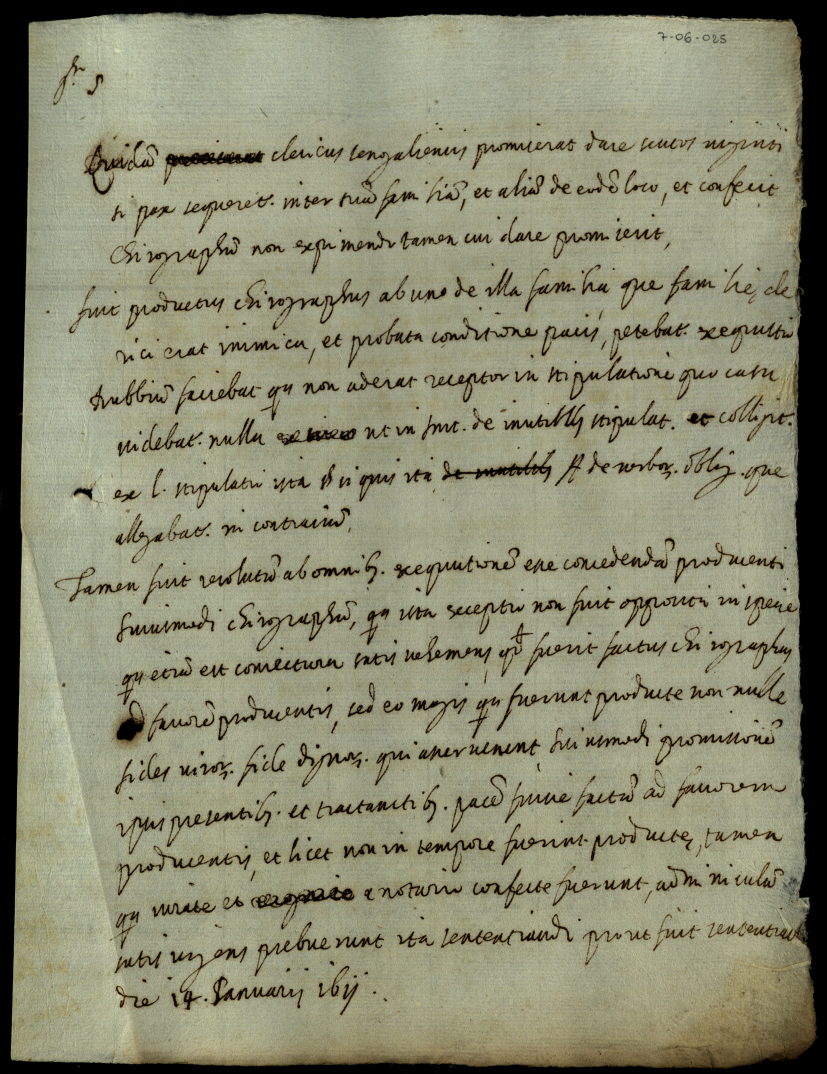 7-06-025
fr. 5
Quidā clericus sengaliensis promiserat dare scutos viginti
si pax sequeret. inter suā familiā, et aliā de eodē loco, et confecit
chirographū non exprimendo tamen cui dare promiserit,
fuit productus chirographus ab uno de illa familia que familię cle
rici erat inimica, et probata conditione pacis, petebat. exequutio
dubbiū faciebat qa non aderat receptor in stipulatione quo casu
videbat. nulla ut in Inst. de inutilib stipulat. colligit.
ex l. stipulatio ista § si quis ita ff de verbor. oblig. que
allegabat. in contrariū,
Tamen fuit resolutū ab omnib. exequutionē esse concedendā producenti
huiusmodi chirographū, qa ista exceptio non fuit opposita in specie
qa etiā est coniectura satis vehemens, qd fuerit factus chirographus
ad favorē producentis, sed eo magis qa fuerunt producte non nulle
fides viror. fide dignor. qui asseruerunt huiusmodi promissionē
ipsis presentib. et tractantib. pacē fuisse factā ad favorem
producentis, et licet non in tempore fuerint productę, tamen
qa iurate et a notario confecte fuerunt, adminiculū
satis urgens prebuerunt ita sentenciandi prout fuit sententiat
die 14. Januarij 1611.